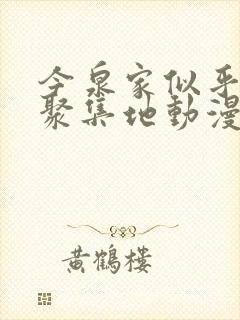 今泉家似乎
聚集地動漫
黃鶴樓